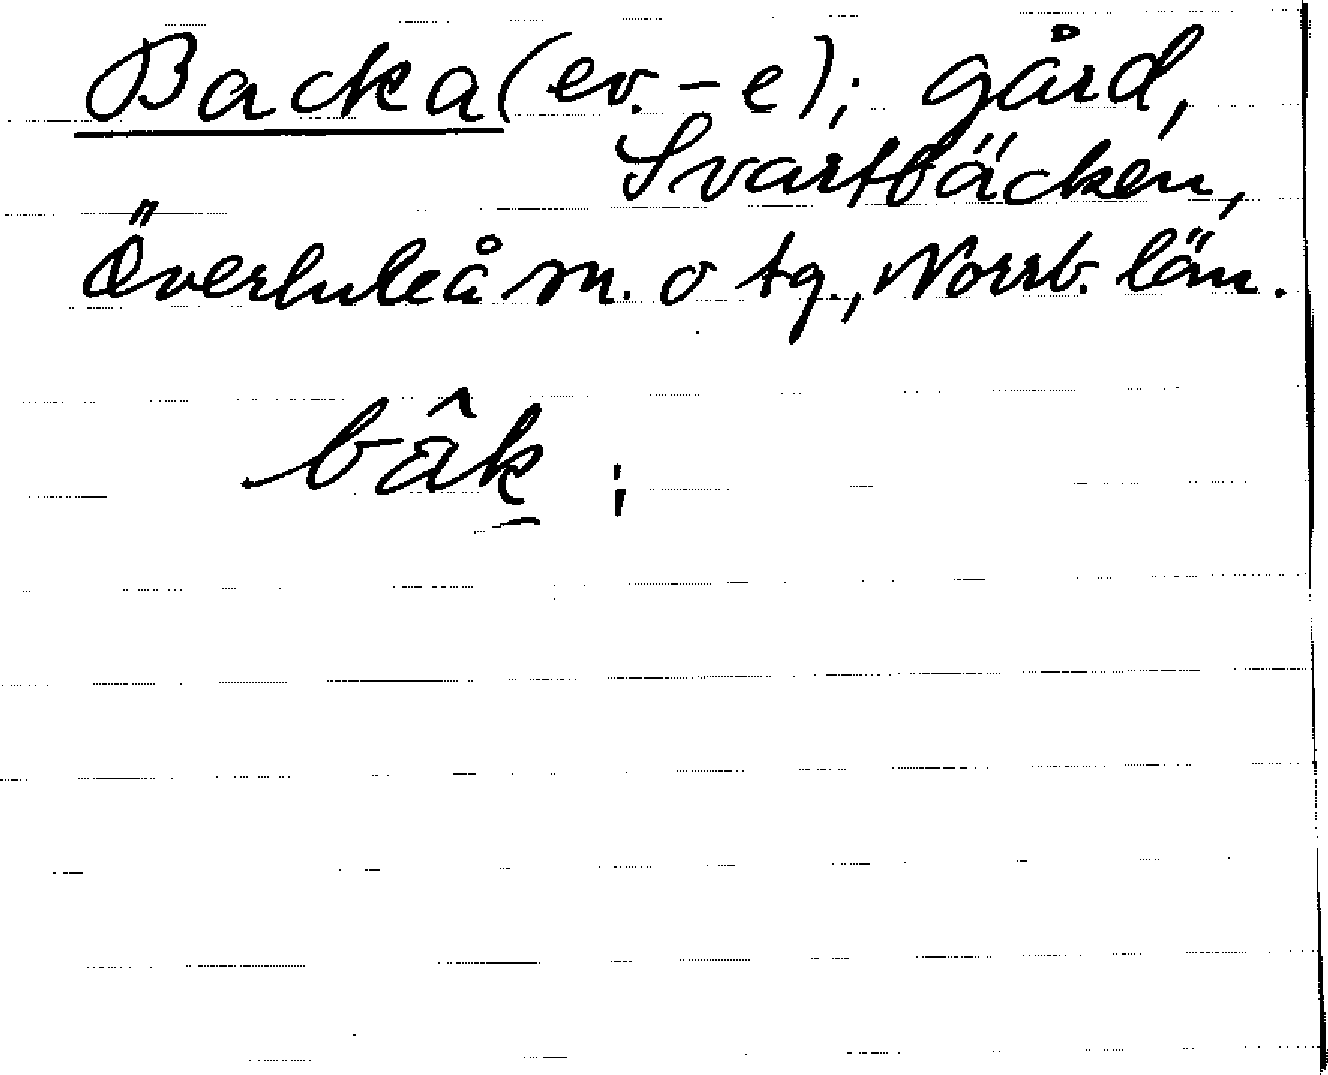 Backa (ev. -e); gård,
Svartbäcken,
Överluleå sn. o tg., Norrb. län.
bâk̠ ;